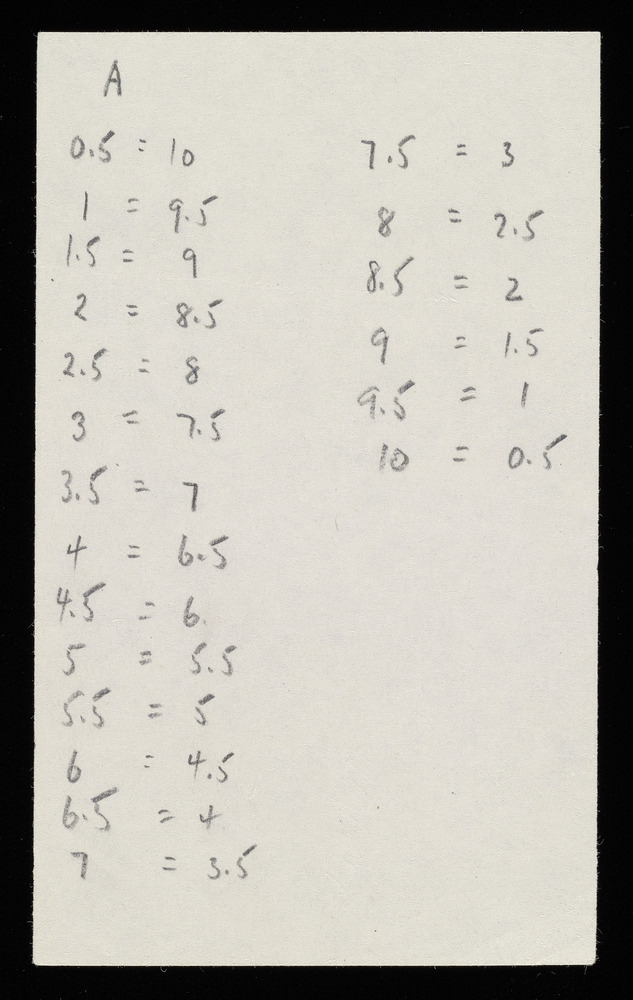 A
0.5 = 10
1 = 9.5
1.5 = 9
2 = 8.5
2.5 = 8
3 = 7.5
3.5 = 7
4 = 6.5
4.5 = 6
5 = 5.5
5.5 = 5
6 = 4.5
6.5 = 4
7 = 3.5
7.5 = 3
8 = 2.5
8.5 = 2
9 = 1.5
9.5 = 1
10 = 0.5